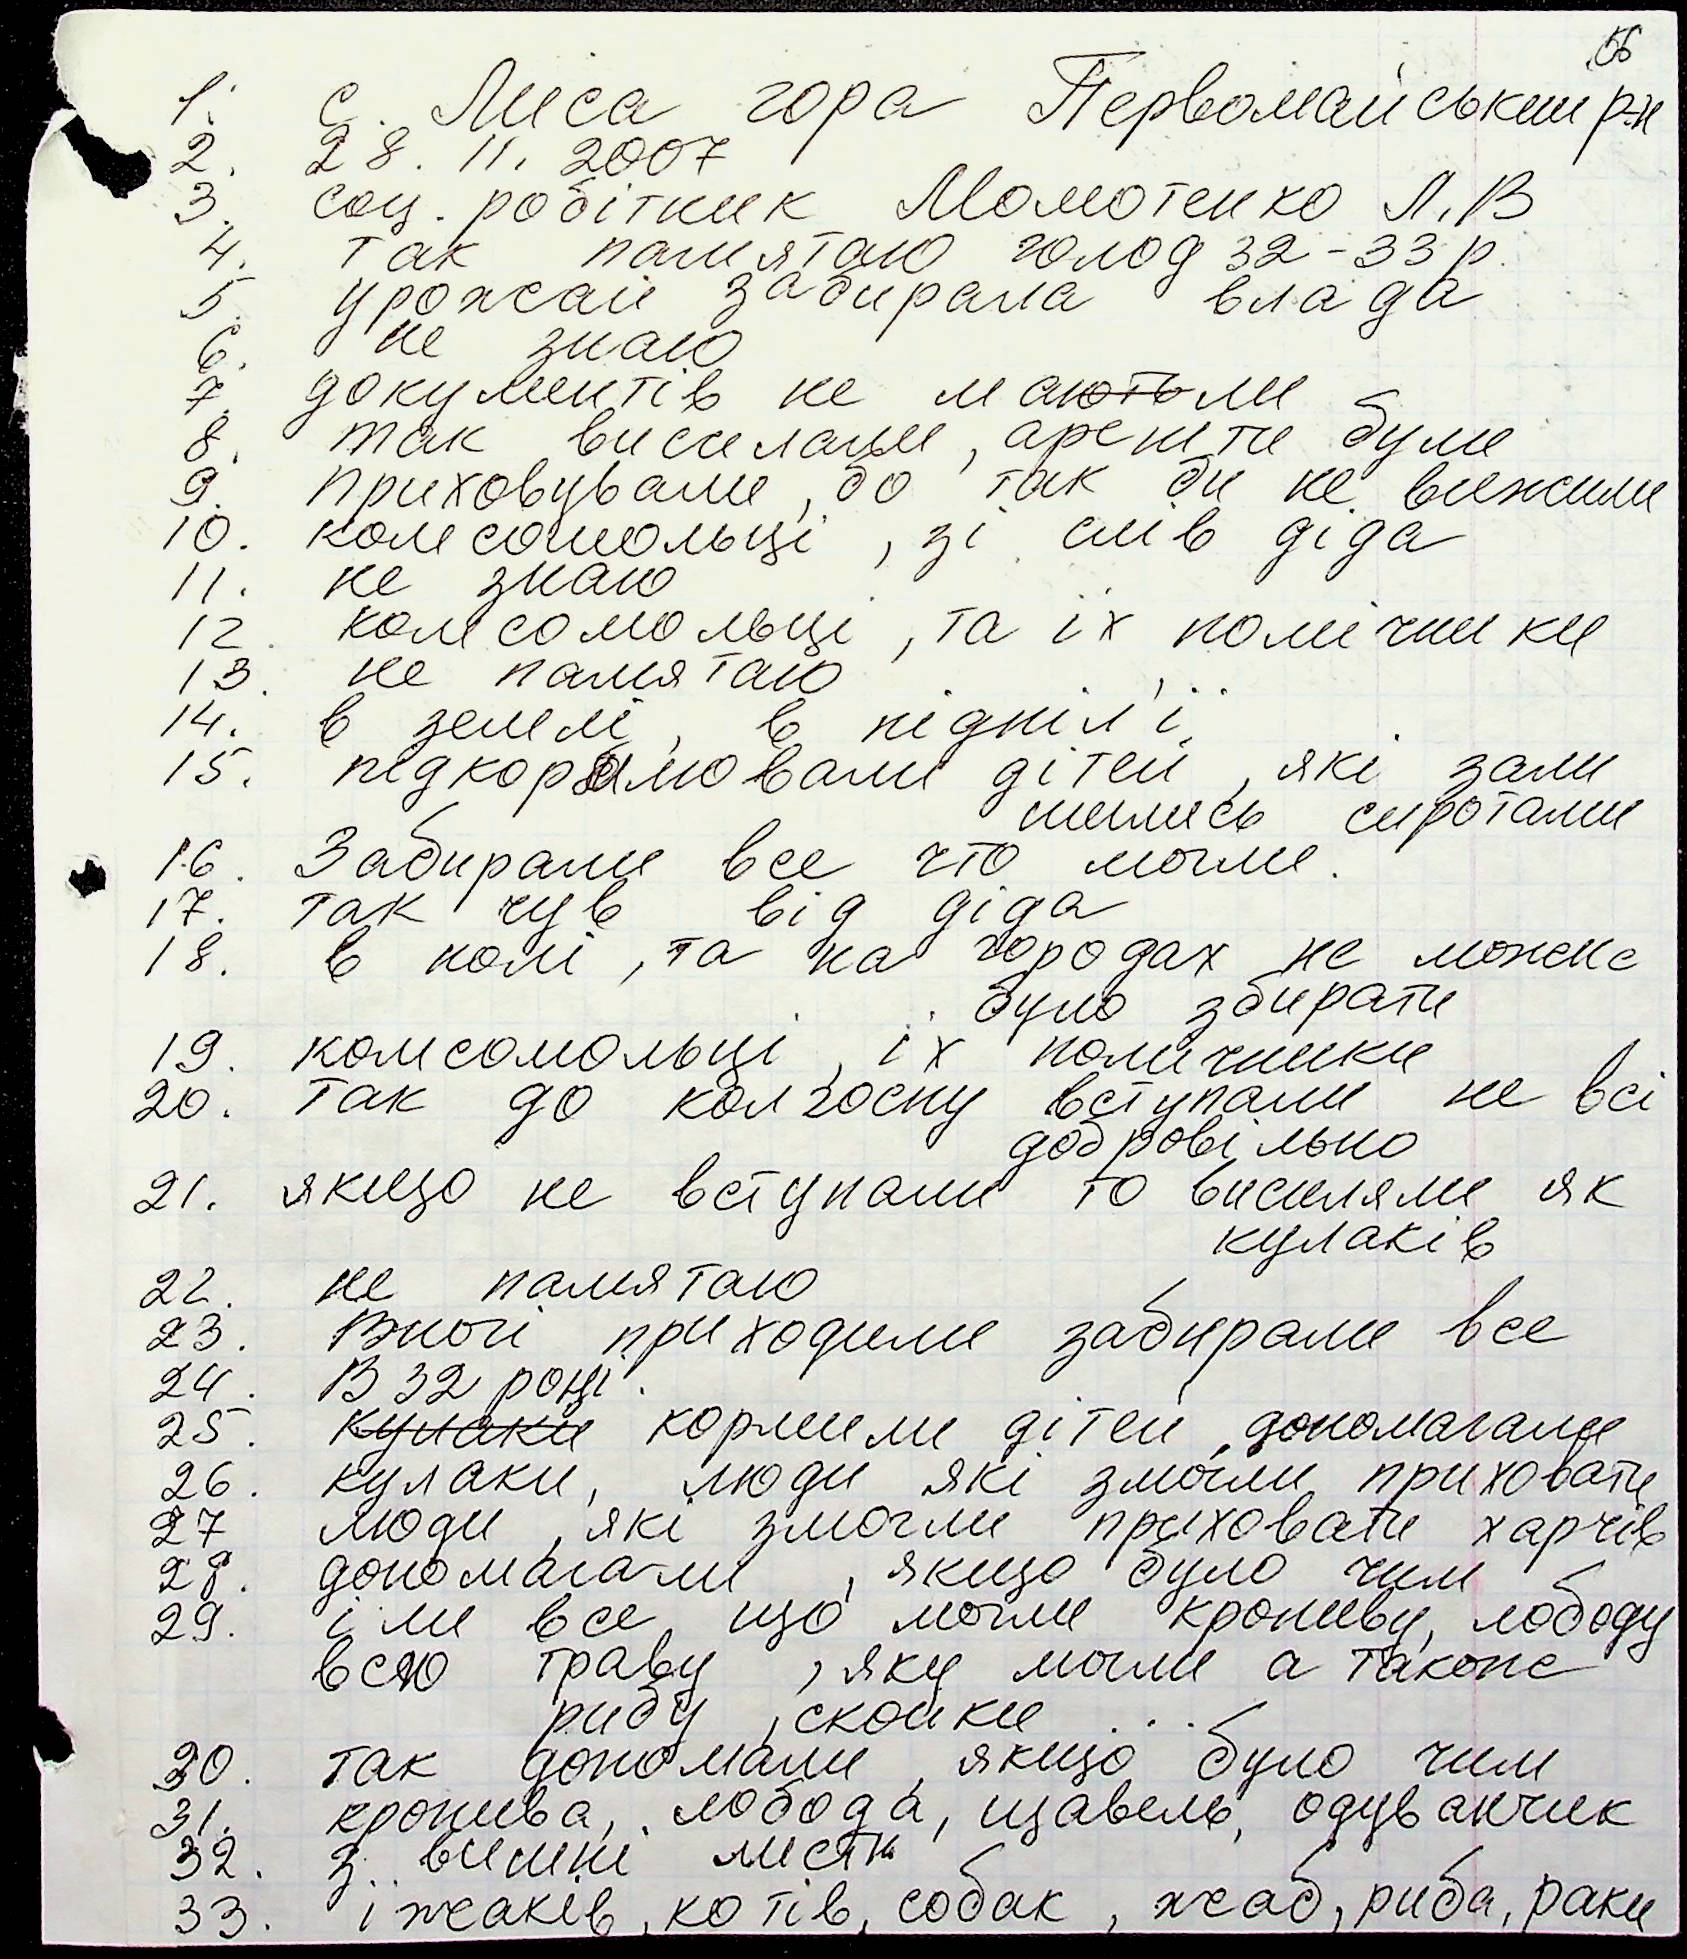 56
1. с. Лиса гора Первомайський р-н
2. 28. 11. 2007
3. соц. робітник Момотенко Л. В
4. так памятаю голод 32-33 р.
5 урожай забирала влада
6. не знаю
7. документів не маютьли
8. так висилали, арешти були
9. приховували, бо так би не вижили
10. комсомольці, зі слів діда
11. не знаю
12. комсомольці, та їх помічники
13. не памятаю
14. в землі, в підпіл'ї,
15. підкормлювали дітей, які зали
шились сиротами
16. Забирали все что могли.
17. так чув від діда
18. в полі, та на городах не можна
було збирати
19. комсомольці, їх помічники
20. так до колгоспу вступали не всі
добровільно
21. якщо не вступали то висиляли як
кулаків
22. не памятаю
23. Вночі приходили забирали все
24. В 32 році.
25. кулаки кормили дітей, допомагали
26. кулаки, люди які змогли приховати
27 люди, які змогли приховати харчів
28. допомагали, якщо було чим
29. їли все, що могли кропиву, лободу
всю траву, яку могли а також
рибу, скойки ...
30. так допомали, якщо було чим
31. кропива, лобода, щавель, одуванчик
32. з вишні листя
33. їжаків, котів, собак, жаб, риба, раки